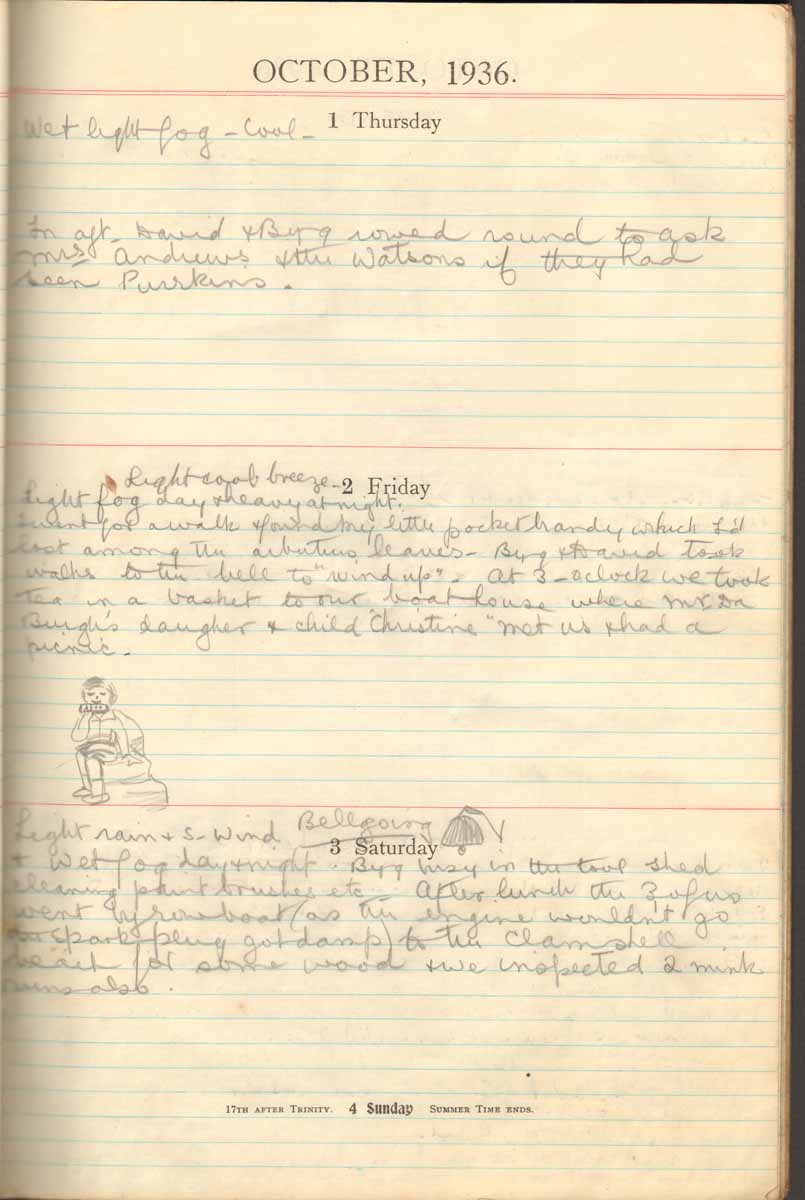 OCTOBER, 1936.
1 Thursday
Wet light fog - Cool -
In aft. David & Byg rowed round to ask
Mrs Andrews & the Watsons if they had
seen Purrkins.
2 Friday
Light cool breeze -
Light fog day & heavy at night.
I went for a walk & found my little pocket handy which I'd
lost among the arbutus leaves - Byg & David took
walks to the bell to "wind up" - At 3-oclock we took
tea in a basket to our boat house where Mr. Da
Burgh's daugher & child "Christine" met us & had a
picnic.
Light rain & S- Wind Bellgoing
3 Saturday
& Wet fog day & night. Byg busy in the tool shed
cleaning paint brushes etc - After lunch the 3 of us
went by rowboat (as the engine wouldn't go
spark plug got damp) to the Clamshell
beach for some wood & we inspected 2 mink
runs also.
17TH AFTER TRINITY. 4 Sunday SUMMER TIME ENDS.